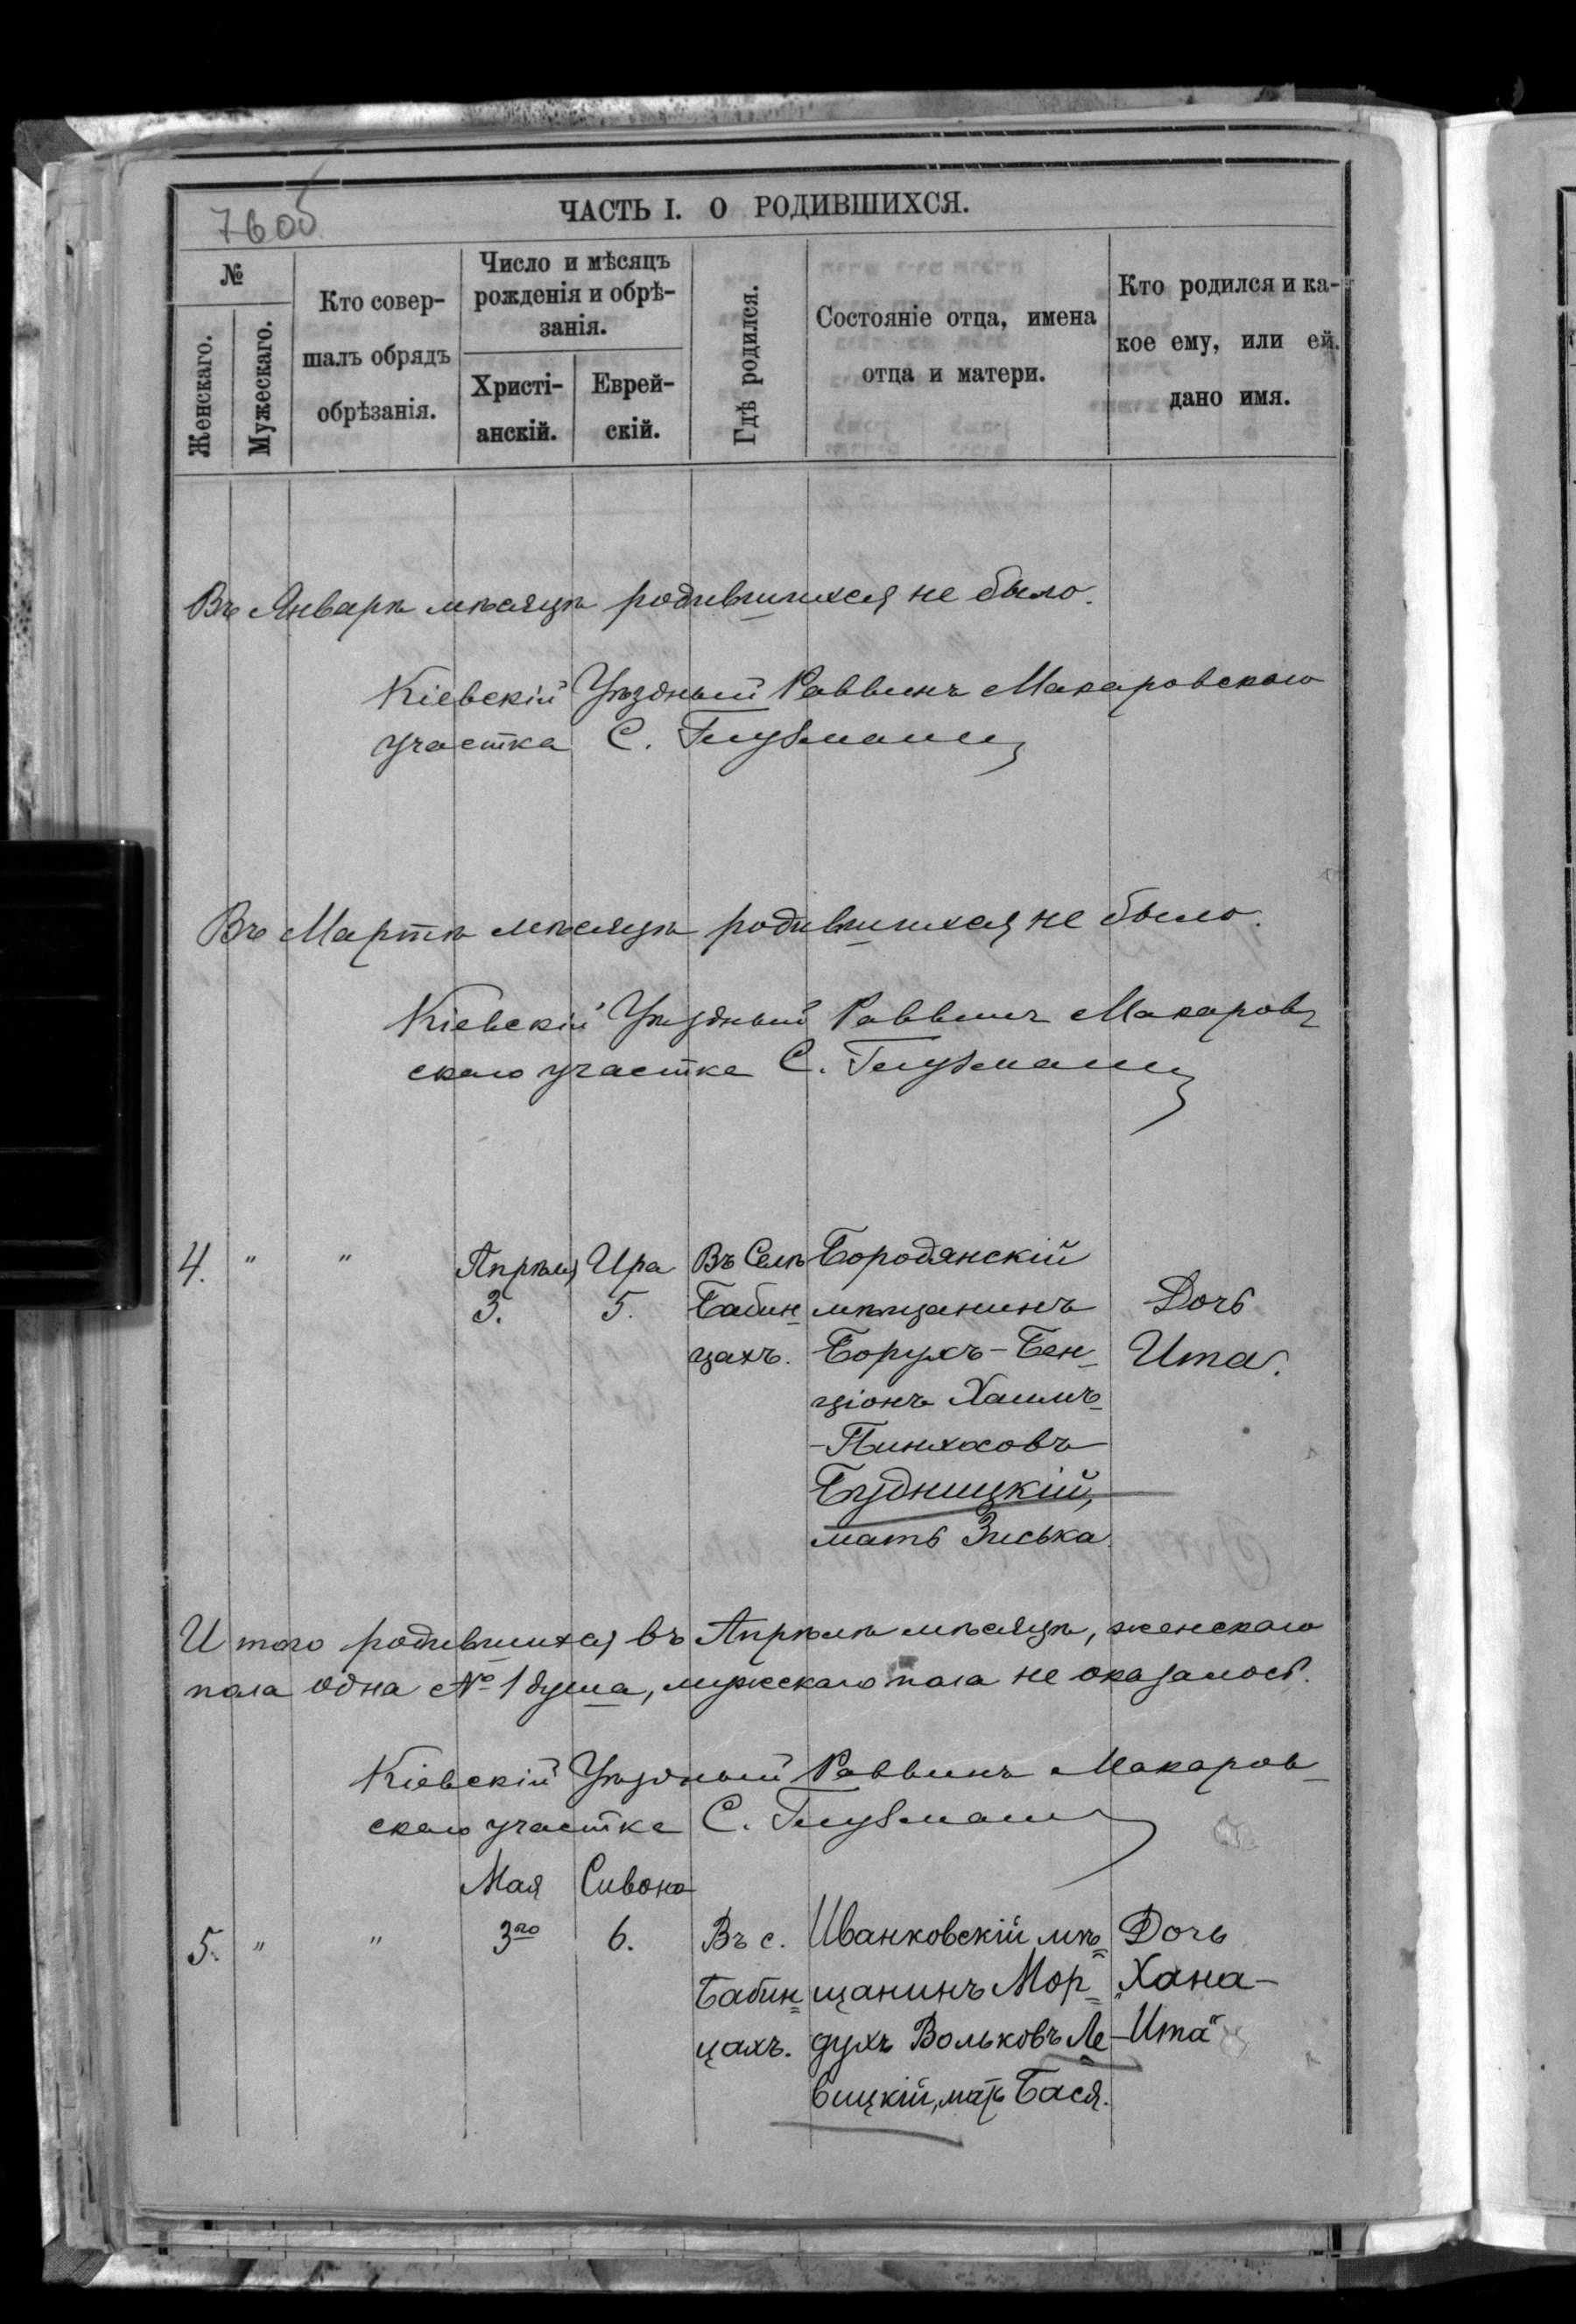 7605
ЧАСТЬ I. О РОДИВШИХСЯ.
№
Женскаго.
Мужескаго.
Кто совер-
шалъ обрядъ
обрѣзанія.
Число и мѣсяцъ
рожденія и обрѣ-
занія.
Христі-
анскій.
Еврей-
скій.
Гдѣ родился.
Состояніе отца, имена
отца и матери.
Кто родился и ка-
кое ему, или ей.
дано имя.
Въ Январѣ мѣсяцѣ родившихся не было.
Кіевскій Уѣздный Раввинъ Макаровскаго
участка С. Глузманъ
Въ Мартѣ мѣсяцѣ родившихся не было.
Кіевскій Уѣздный Раввинъ Макаров-
скаго участка С. Глузманъ
4. " " Апрѣля Ира Въ Селѣ Бородянскій
3. 5. Бабин- мѣщанинъ Дочь
цахъ. Борухъ-Бен- Ита.
ціонъ Хаимъ-
-Пинхасовъ
Будницкій,
мать Зиська.
Итого родившихся въ Апрѣлѣ мѣсяцѣ, женскаго
пола одна № 1 душа, мужескаго пола не оказалось.
Кіевскій Уѣздный Раввинъ Макаров-
скаго участка С. Глузманъ
Мая Сивона
5. " " 3го 6. Въ с. Иванковскій мѣ= Дочь
Бабин= щанинъ Мор= „Хана-
цахъ. духъ Вольковъ Ле- Ита“
вицкій, мать Бася.